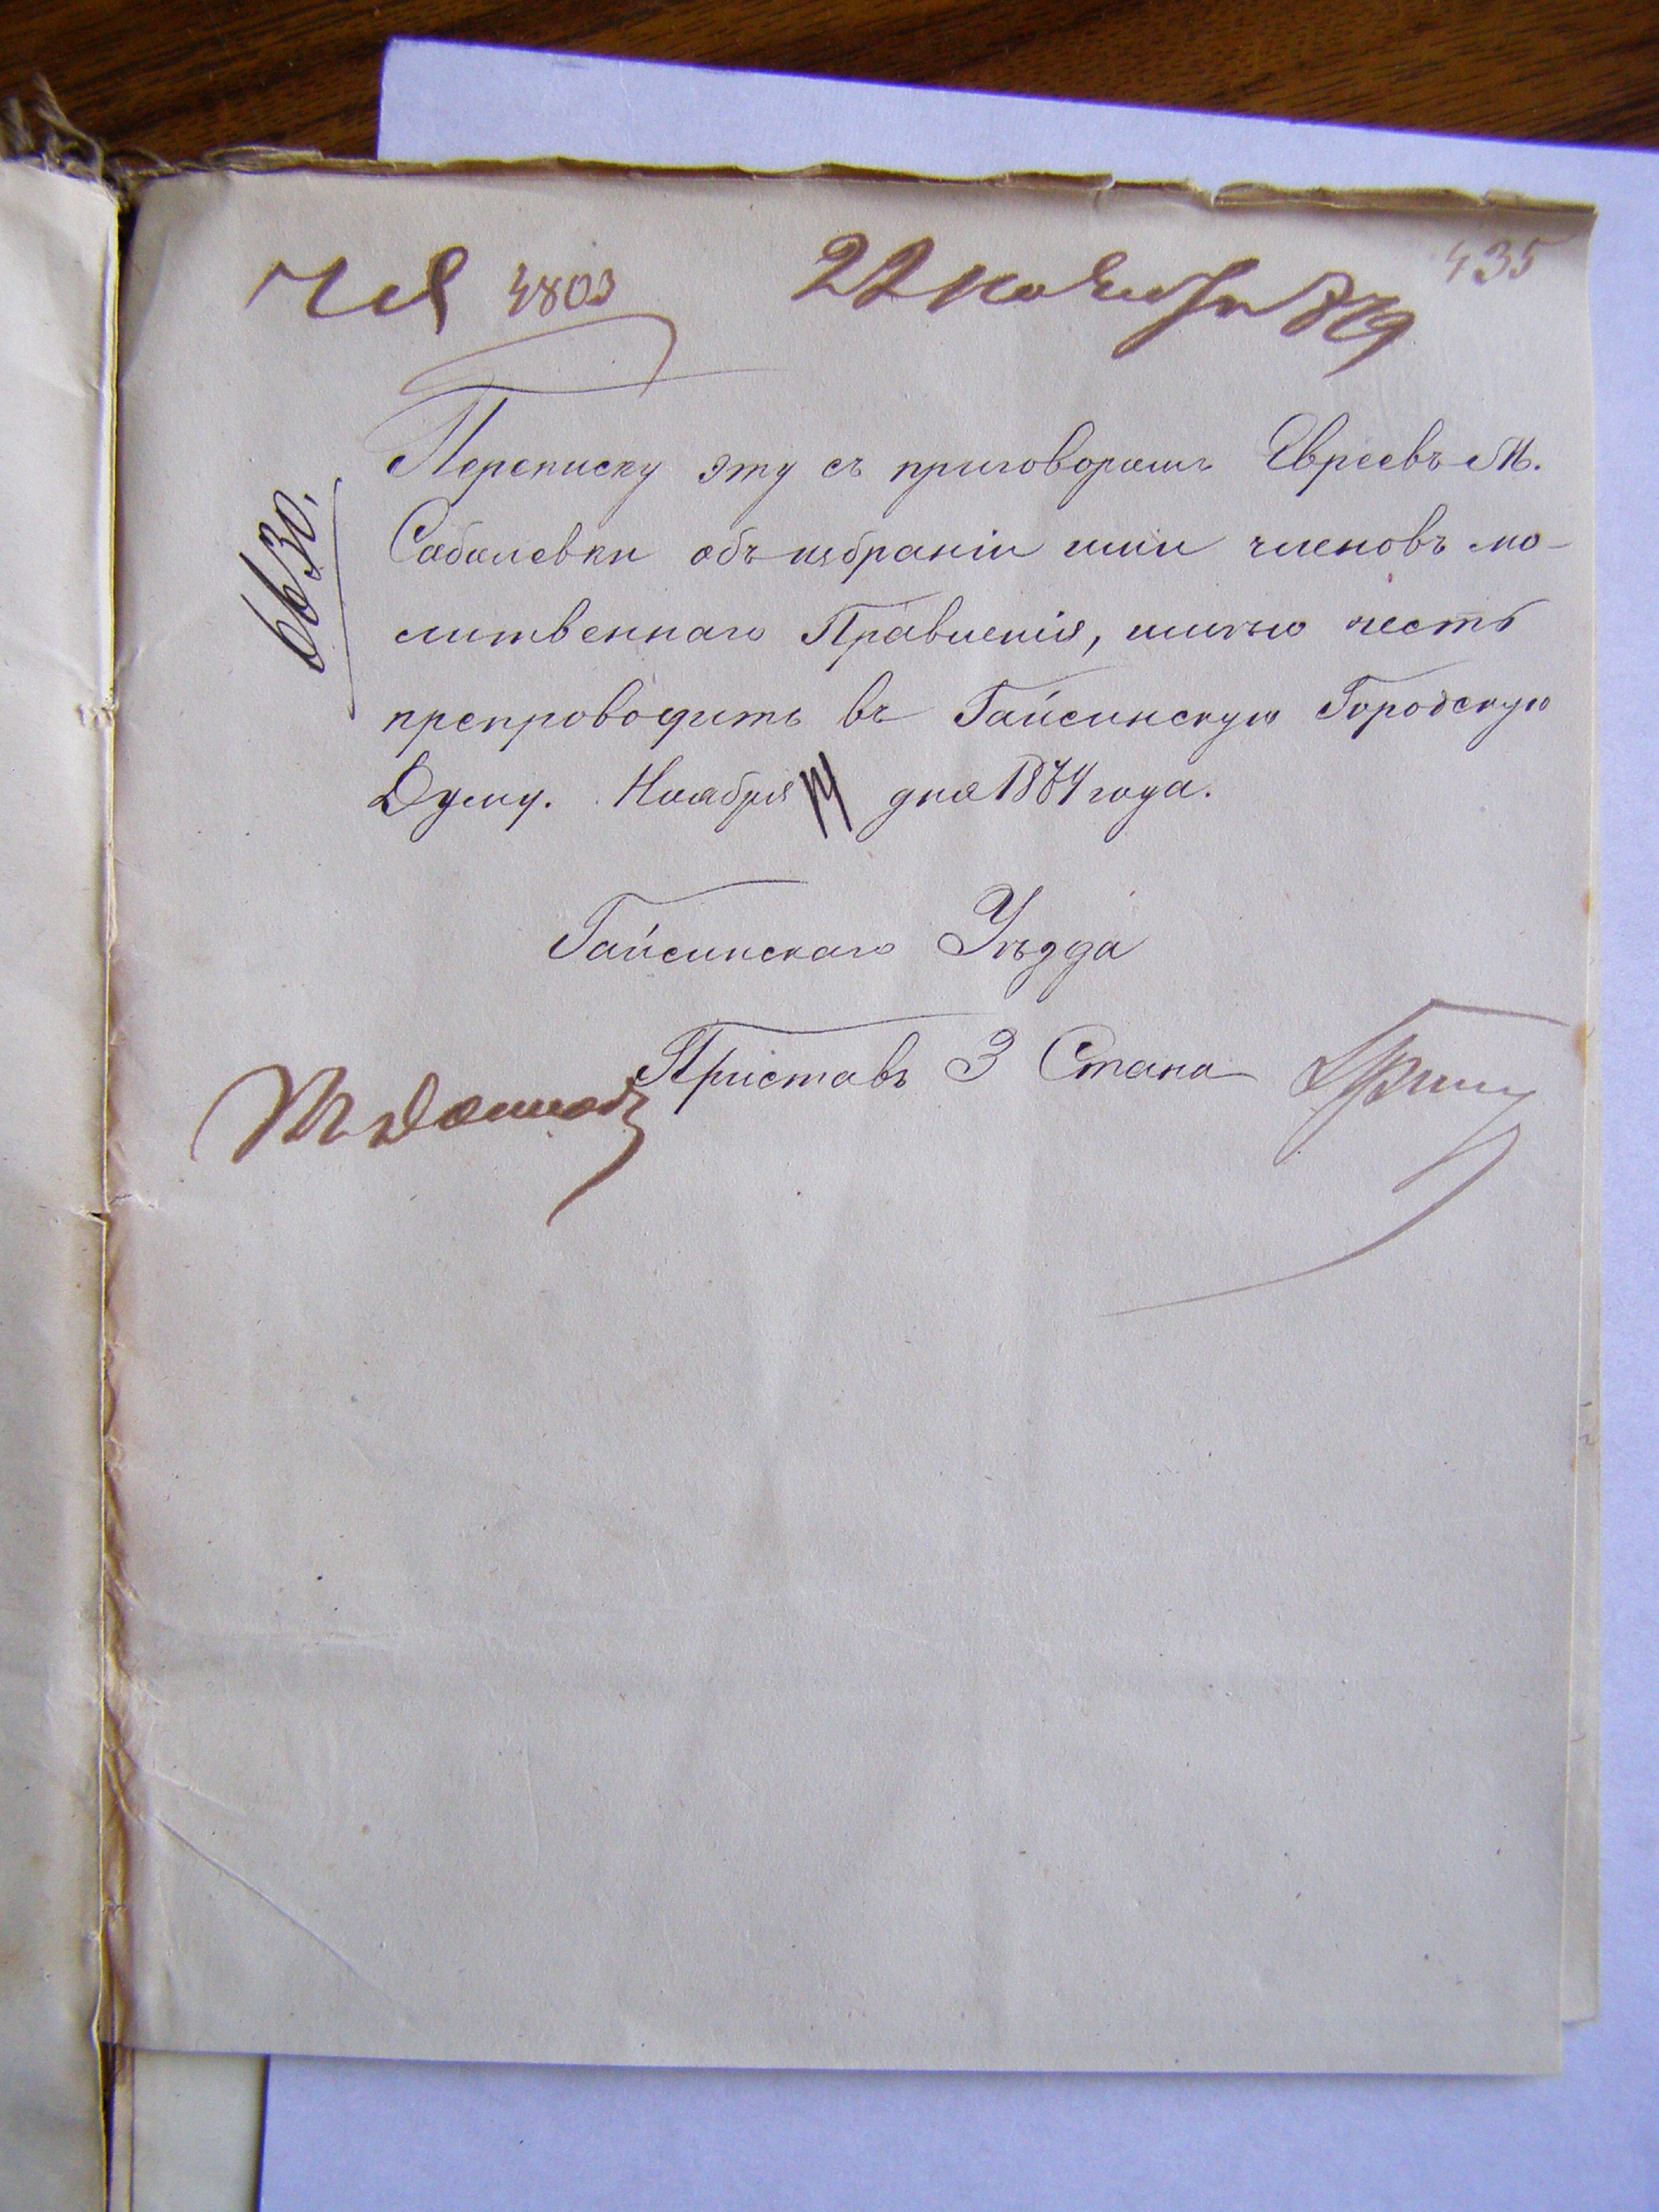 4803 22 ноября 435
6630.
Переписку эту съ приговоромъ Евреевъ М.
Соболевки объ избраніи ими членовъ мо-
литвеннаго Правленія, имѣю честь
препроводить въ Гайсинскую Городскую
Думу. Ноября дня 1874 года.
Гайсинскаго Уѣзда
Приставъ 3 Стана